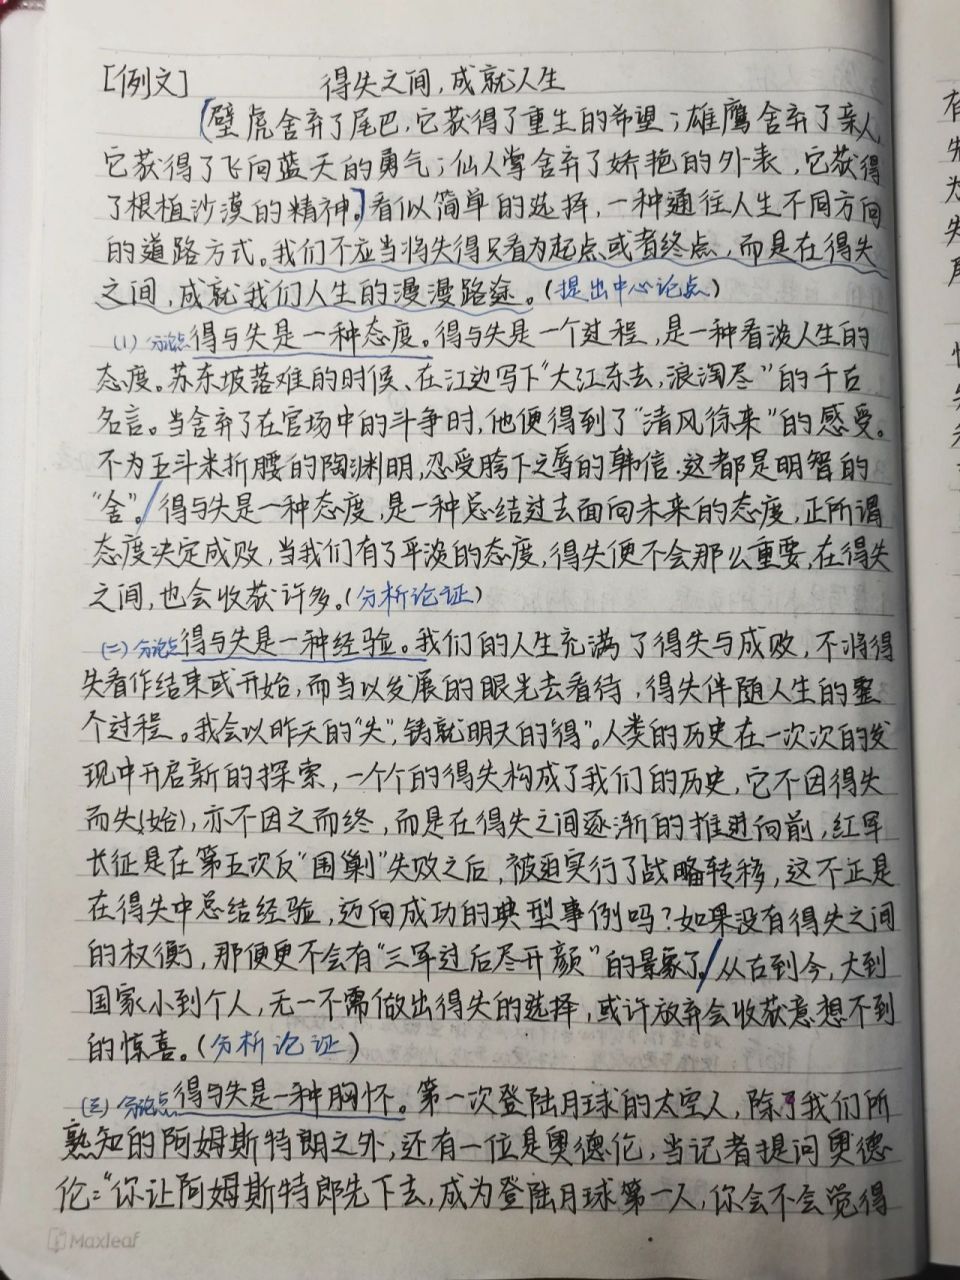 [例文] 得失之间,成就人生
壁虎舍弃了尾巴,它获得了重生的希望;雄鹰舍弃了亲人
它获得了飞向蓝天的勇气;仙人掌舍弃了娇艳的外表,它获得
了根植沙漠的精神。看似简单的选择,一种通往人生不同方向
的道路方式。我们不应当将失得只看为起点或者终点,而是在得失
之间,成就我们人生的漫漫路途。(提出中心论点)
(1)分论点得与失是一种态度。得与失是一个过程,是一种看淡人生的
态度。苏东坡落难的时候、在江边写下"大江东去,浪淘尽"的千古
名言。当舍弃了在官场中的斗争时,他便得到了"清风徐来"的感受。
不为五斗米折腰的陶渊明,忍受胯下之辱的韩信.这都是明智的
"舍"。/得与失是一种态度,是一种总结过去面向未来的态度,正所谓
态度决定成败,当我们有了平淡的态度,得失便不会那么重要,在得失
之间,也会收获许多。(分析论证)
(二)分论点得与失是一种经验。我们的人生充满了得失与成败,不将得
失看作结束或开始,而当以发展的眼光去看待,得失伴随人生的整
个过程。我会以昨天的"失",铸就明天的"得"。人类的历史在一次次的发
现中开启新的探索,一个个的得失构成了我们的历史,它不因得失
而失(始),亦不因之而终,而是在得失之间逐渐的推进向前,红军
长征是在第五次反"围剿"失败之后,被迫实行了战略转移,这不正是
在得失中总结经验,迈向成功的典型事例吗?如果没有得失之间
的权衡,那便更不会有"三军过后尽开颜"的景象了。/从古到今,大到
国家小到个人,无一不需做出得失的选择,或许放弃会收获意想不到
的惊喜。(分析论证)
(三)分论点得与失是一种胸怀。第一次登陆月球的太空人,除了我们所
熟知的阿姆斯特朗之外,还有一位是奥德伦,当记者提问奥德
伦:"你让阿姆斯特郎先下去,成为登陆月球第一人,你会不会觉得
Maxleaf